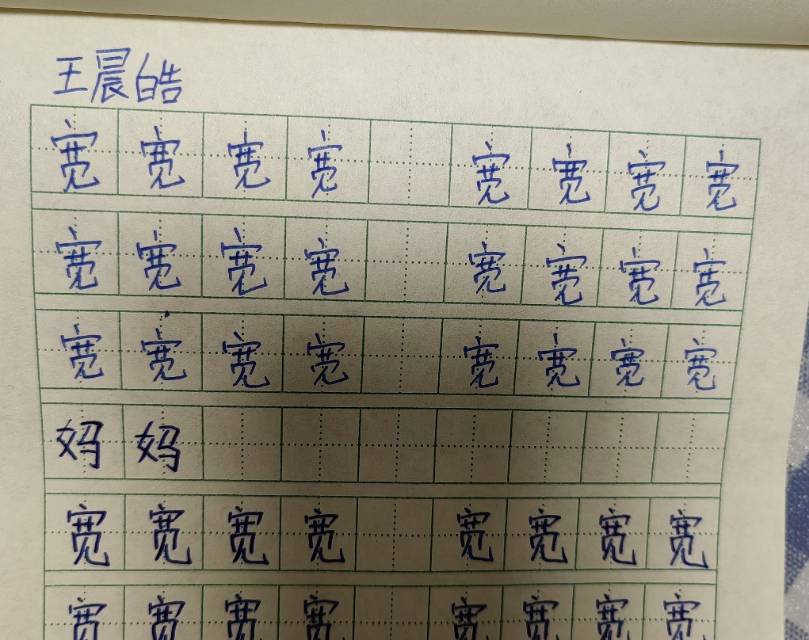 王晨皓
宽宽宽宽 宽宽宽宽
宽宽宽宽 宽宽宽宽
宽宽宽宽 宽宽宽宽
妈妈
宽宽宽宽 宽宽宽宽
宽宽宽宽 宽宽宽宽